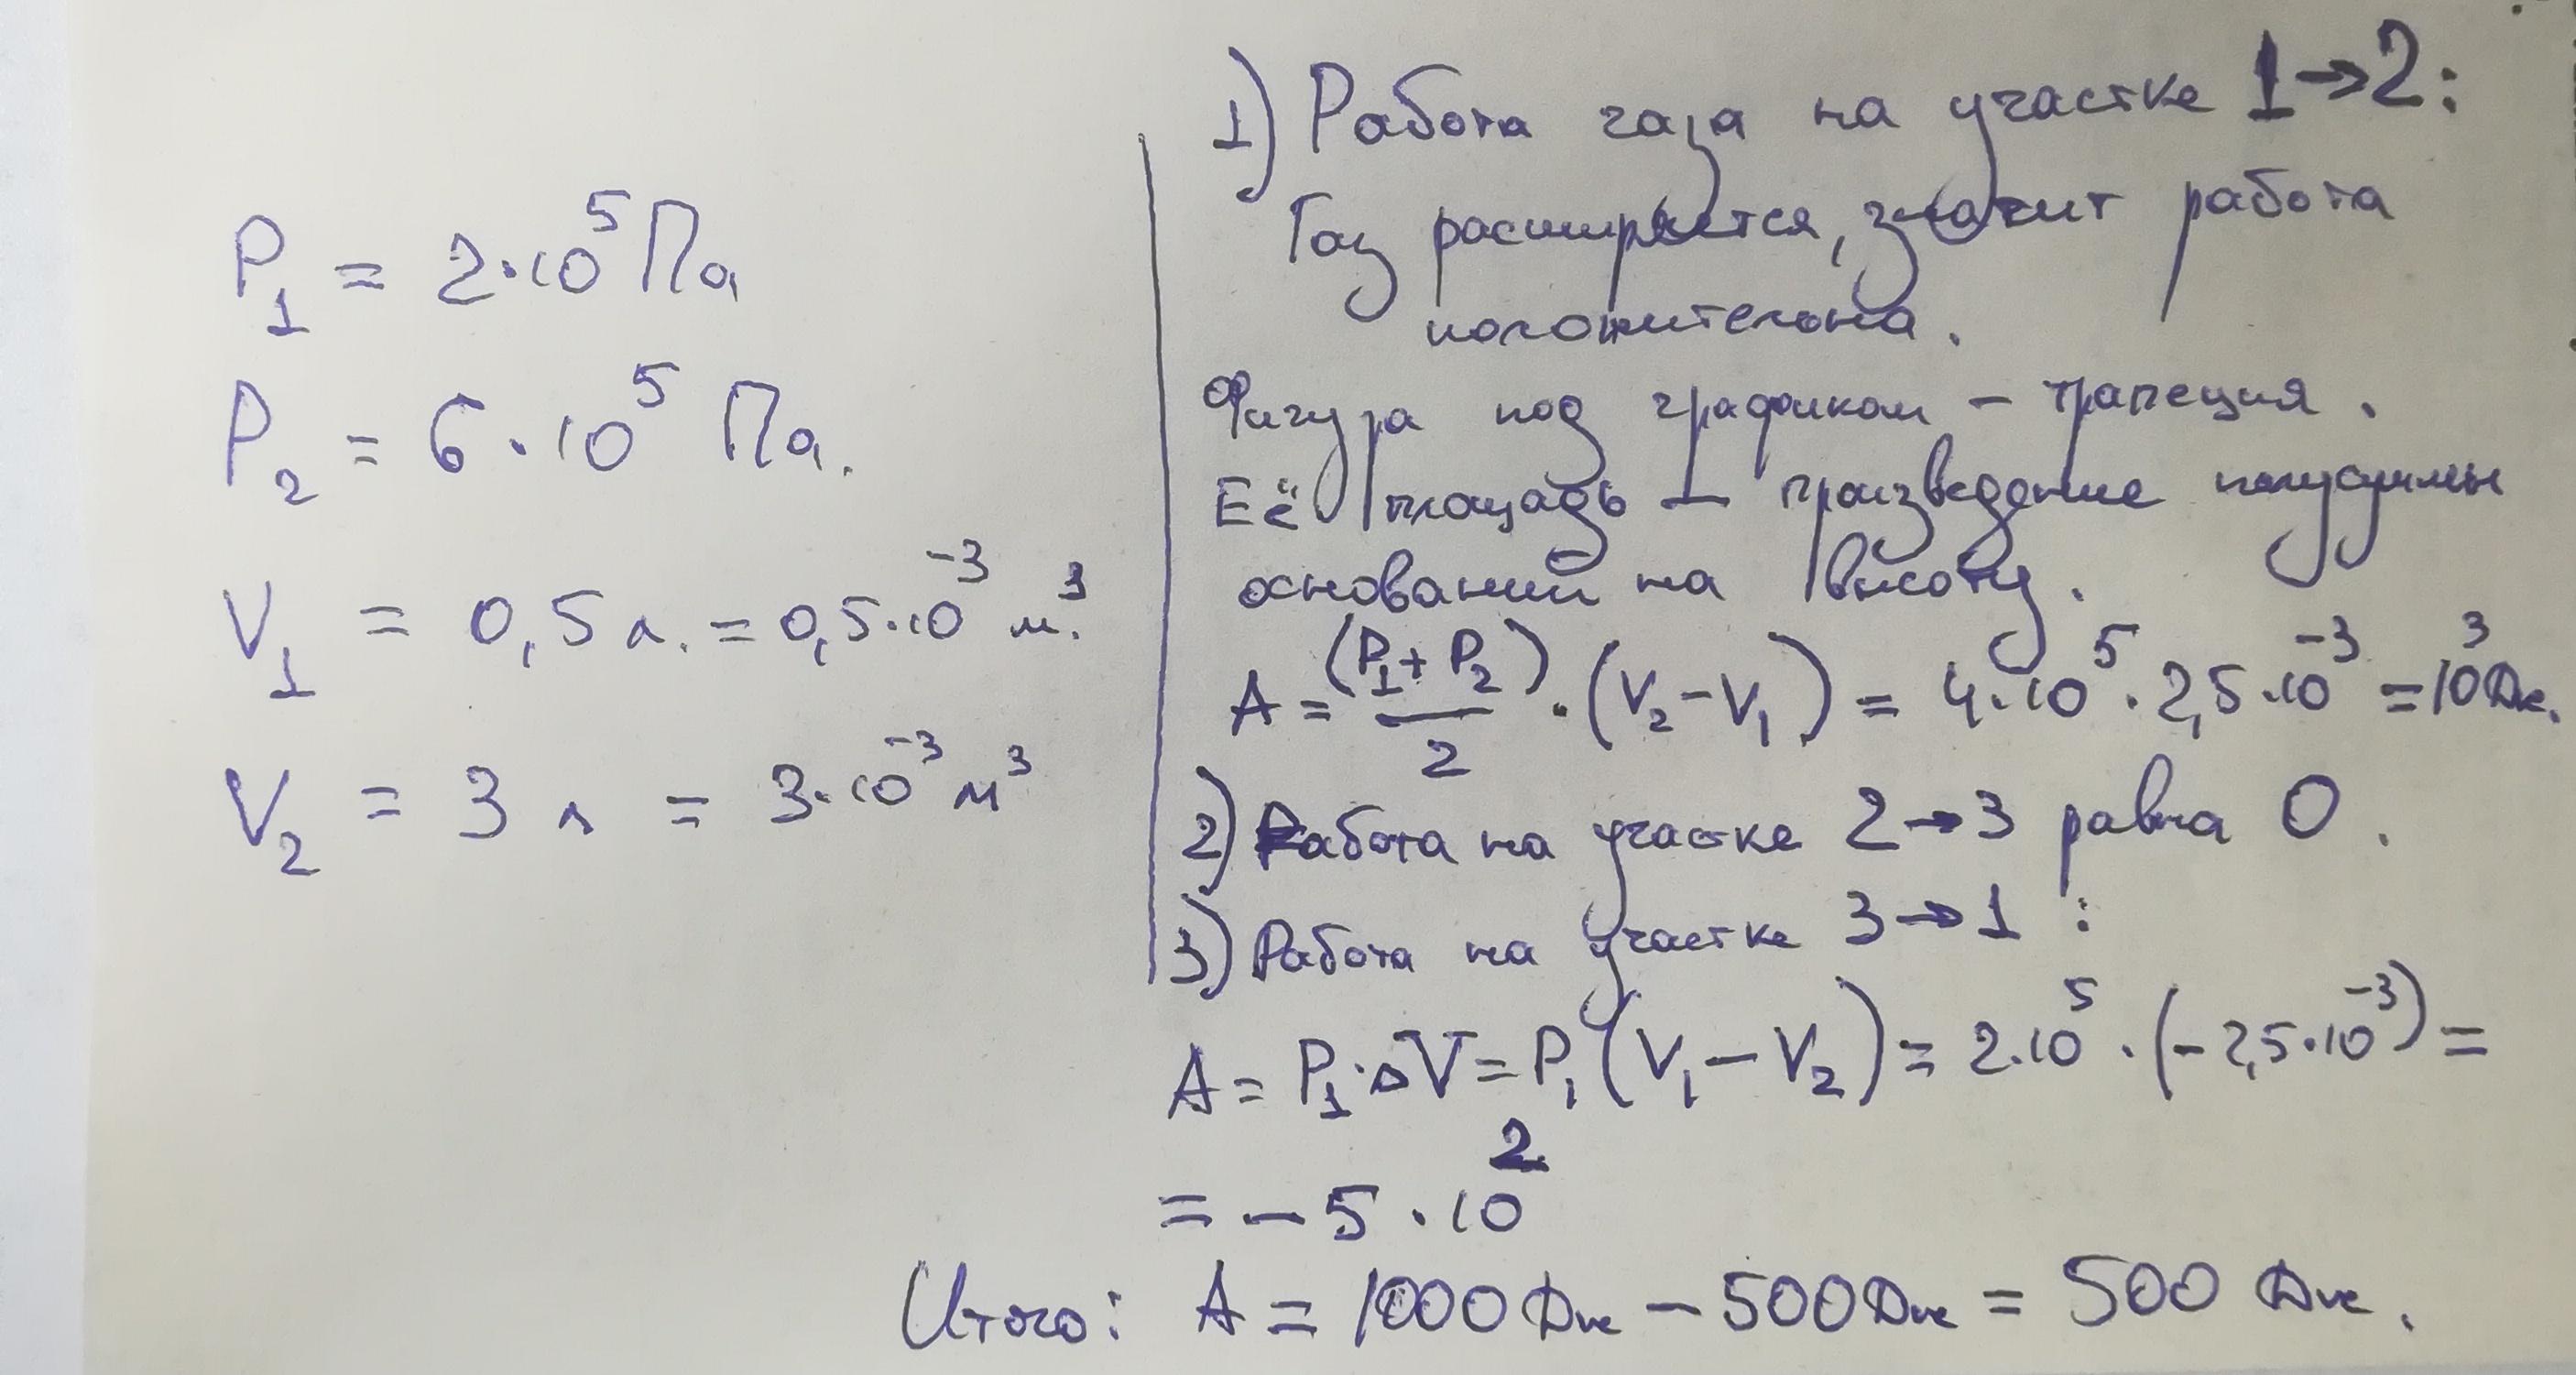 P₁ = 2·10⁵ Па
P₂ = 6·10⁵ Па.
V₁ = 0,5 л. = 0,5·10⁻³ м.³
V₂ = 3 л = 3·10⁻³ м³
1) Работа газа на участке 1→2:
Газ расширяется, значит работа
положительна.
Фигура под графиком – трапеция.
Её площадь – произведение полусуммы
оснований на высоту.
A = (P₁+P₂)/2 · (V₂-V₁) = 4·10⁵ · 2,5·10⁻³ = 10³ Дж.
2) Работа на участке 2→3 равна 0.
3) Работа на участке 3→1:
A = P₁·ΔV = P₁(V₁-V₂) = 2·10⁵ · (-2,5·10⁻³) =
= -5·10²
Итого: A = 1000 Дж - 500 Дж = 500 Дж.